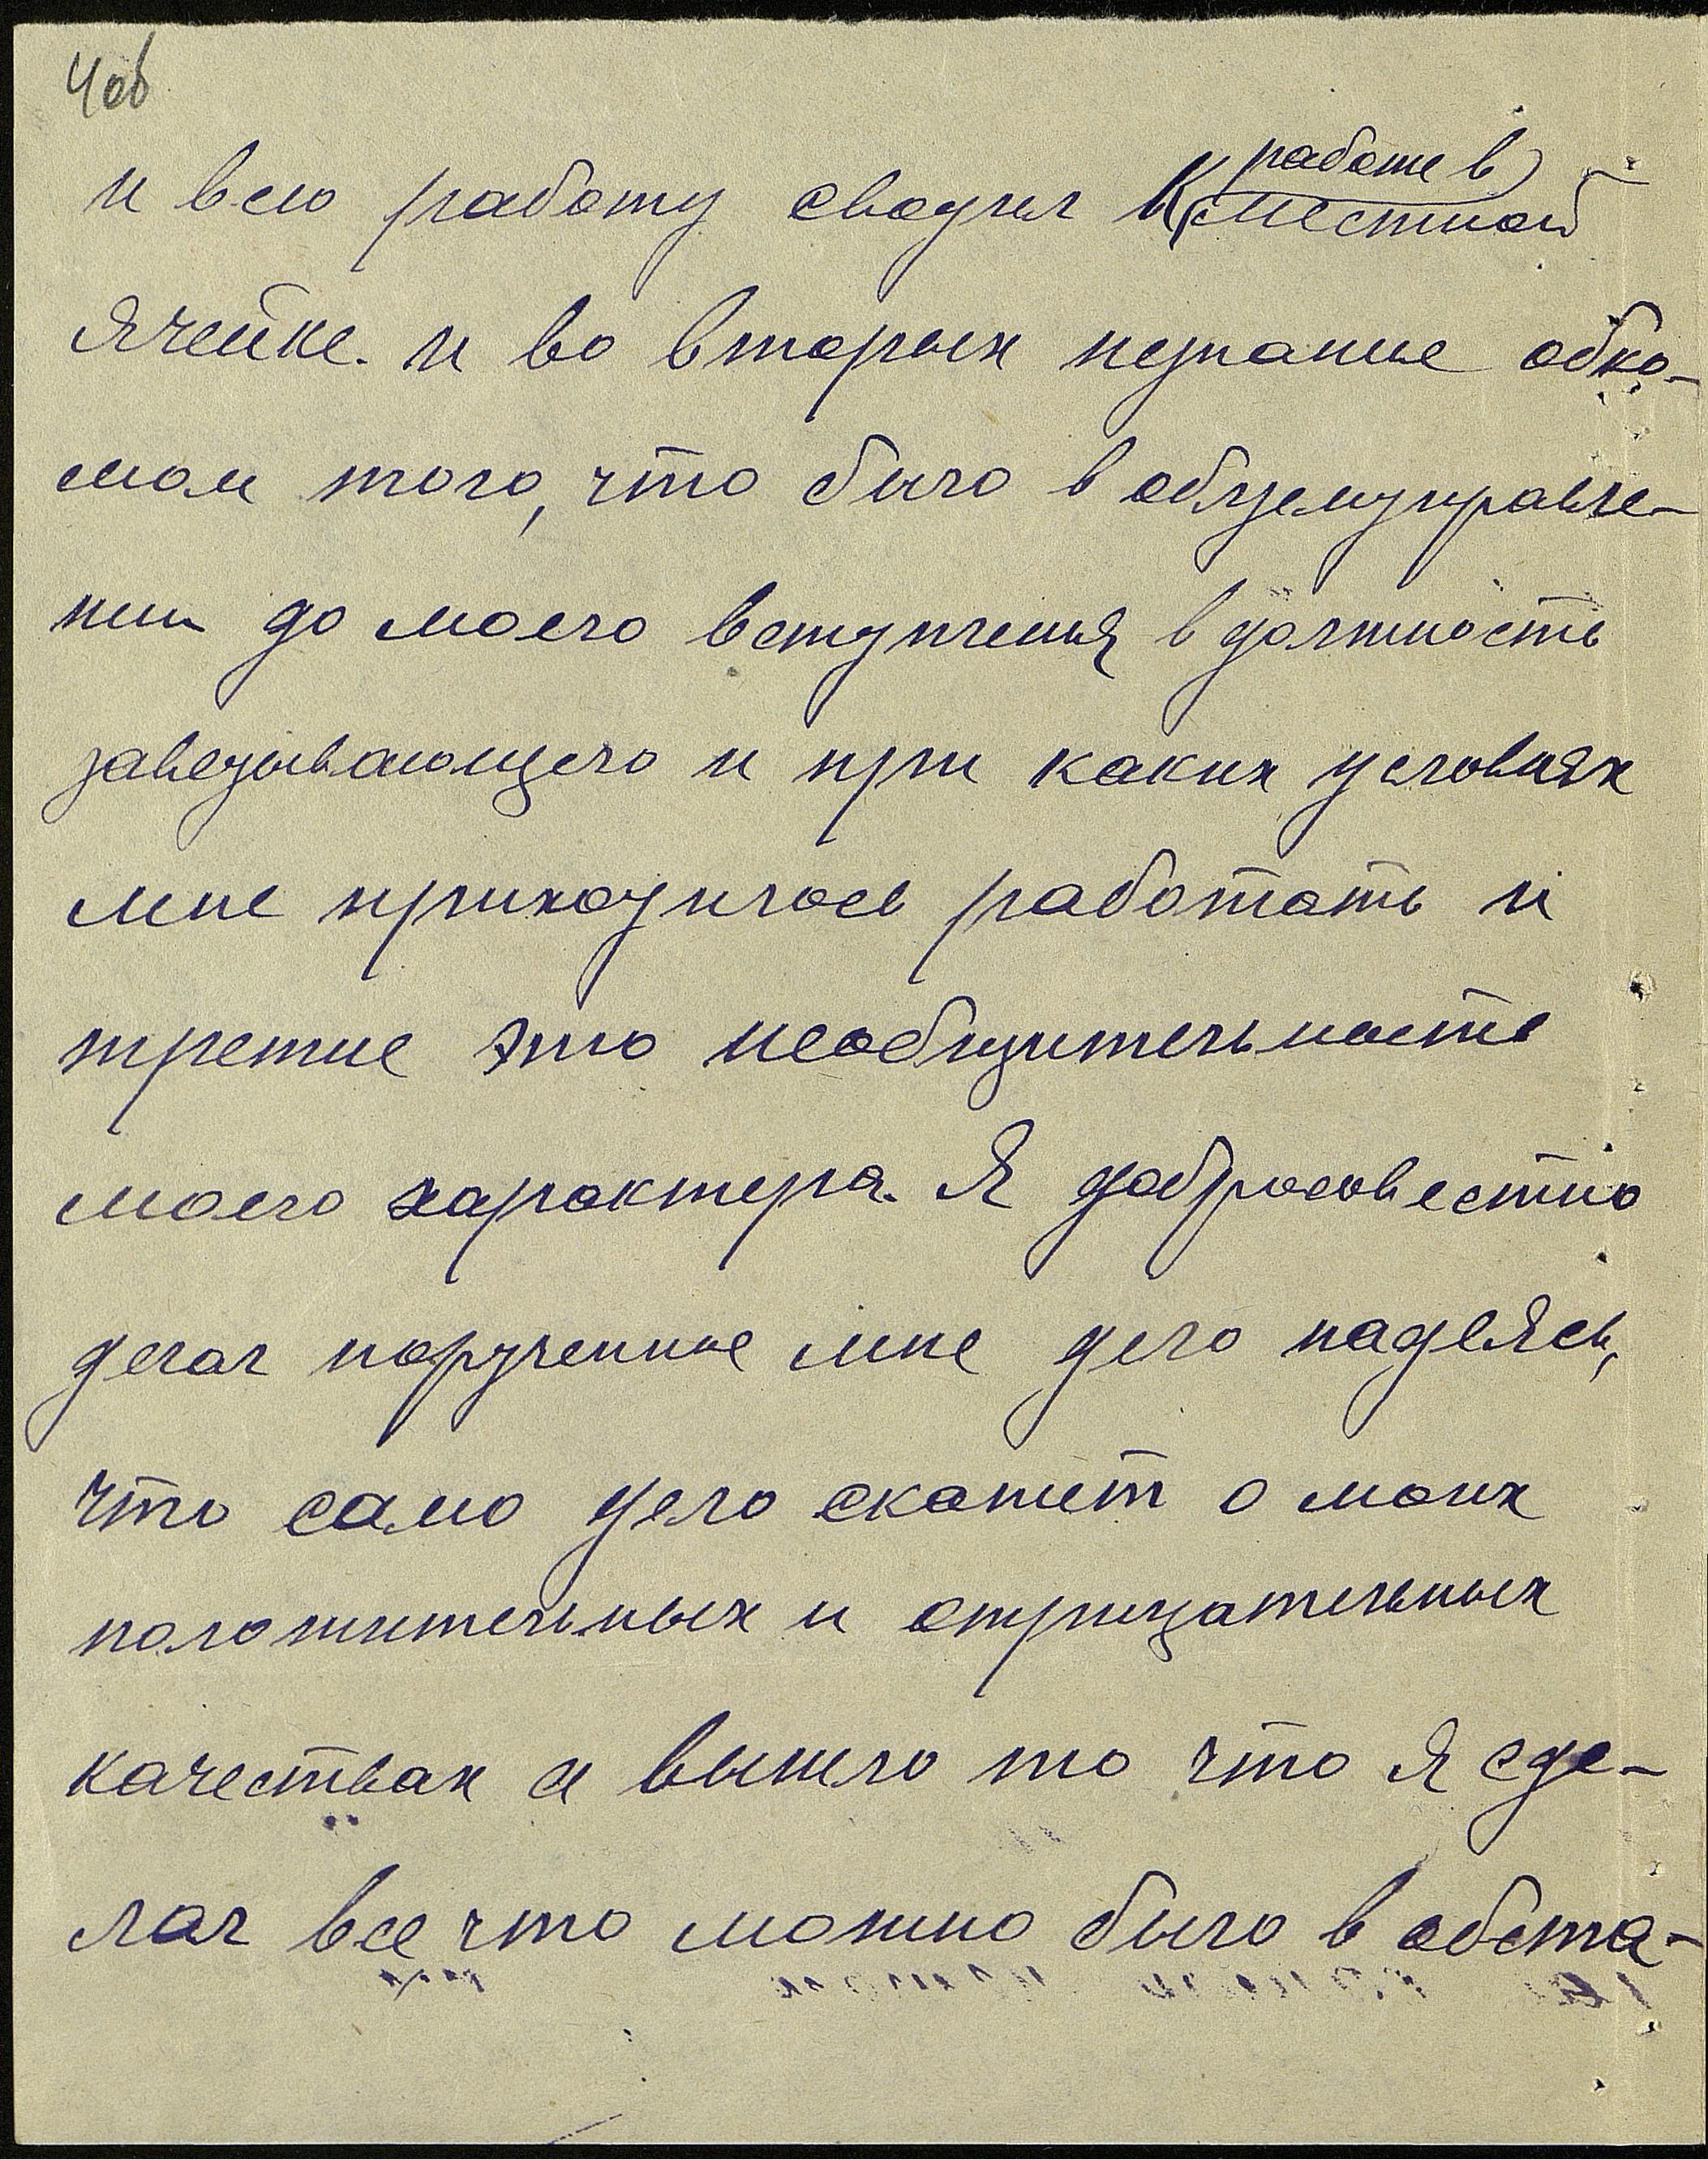 4об
и всю работу сводил к работе в местной
ячейке. и во вторых незнание обко-
мом того, что было в облземуправле-
нии до моего вступления в должность
заведывающего и при каких условиях
мне приходилось работать и
третие это необщительность
моего характера. Я добросовестно
делал порученное мне дело надеясь,
что само дело скажет о моих
положительных и отрицательных
качествах а вышло то что я сде-
лал все что можно было в обста-